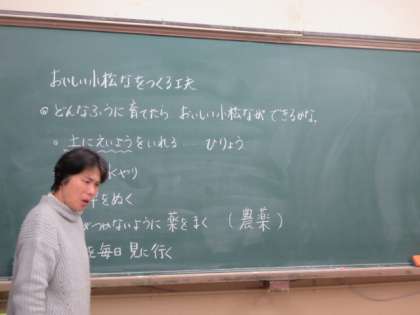 おいしい小松なをつくる工夫
◎どんなふうに育てたら おいしい小松なができるかな。
○ 土にえいようをいれる ひりょう
やり
をぬく
つかないように薬をまく (農薬)
を毎日見に行く